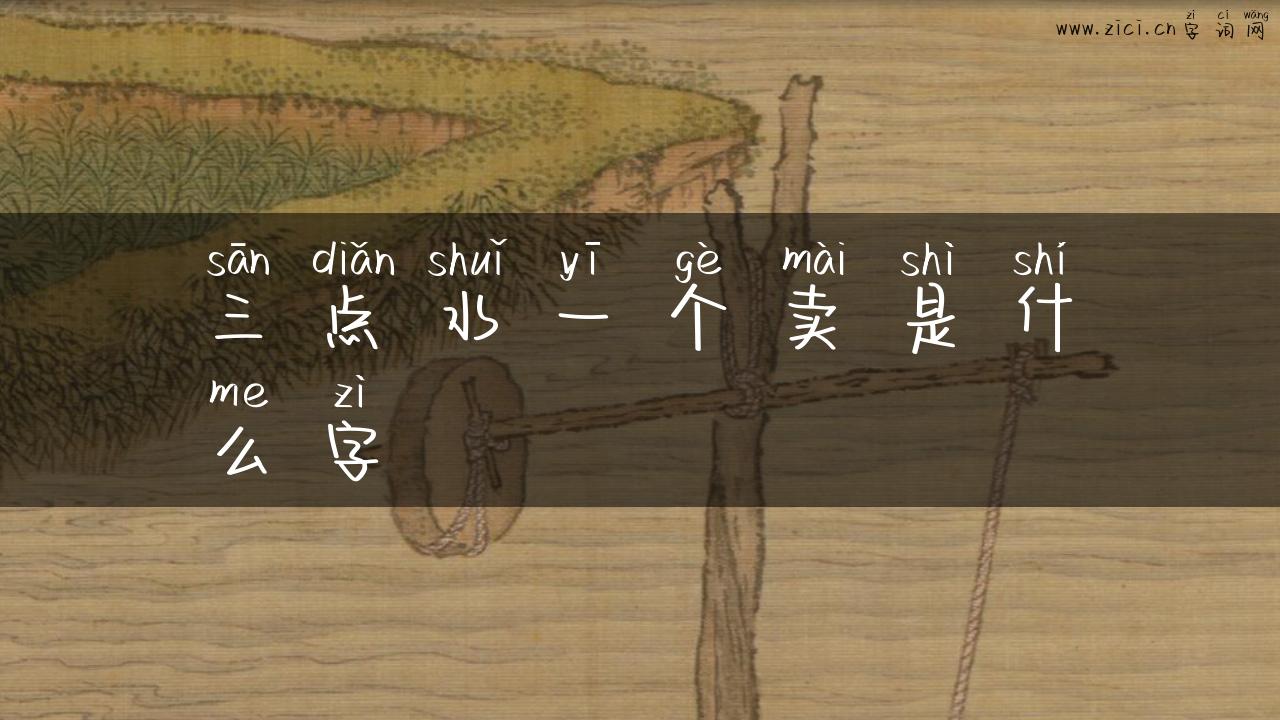 zì cí wǎng
www.zici.cn 字词网
sān diǎn shuǐ yī gè mài shì shí
三点水一个卖是什
me zì
么字